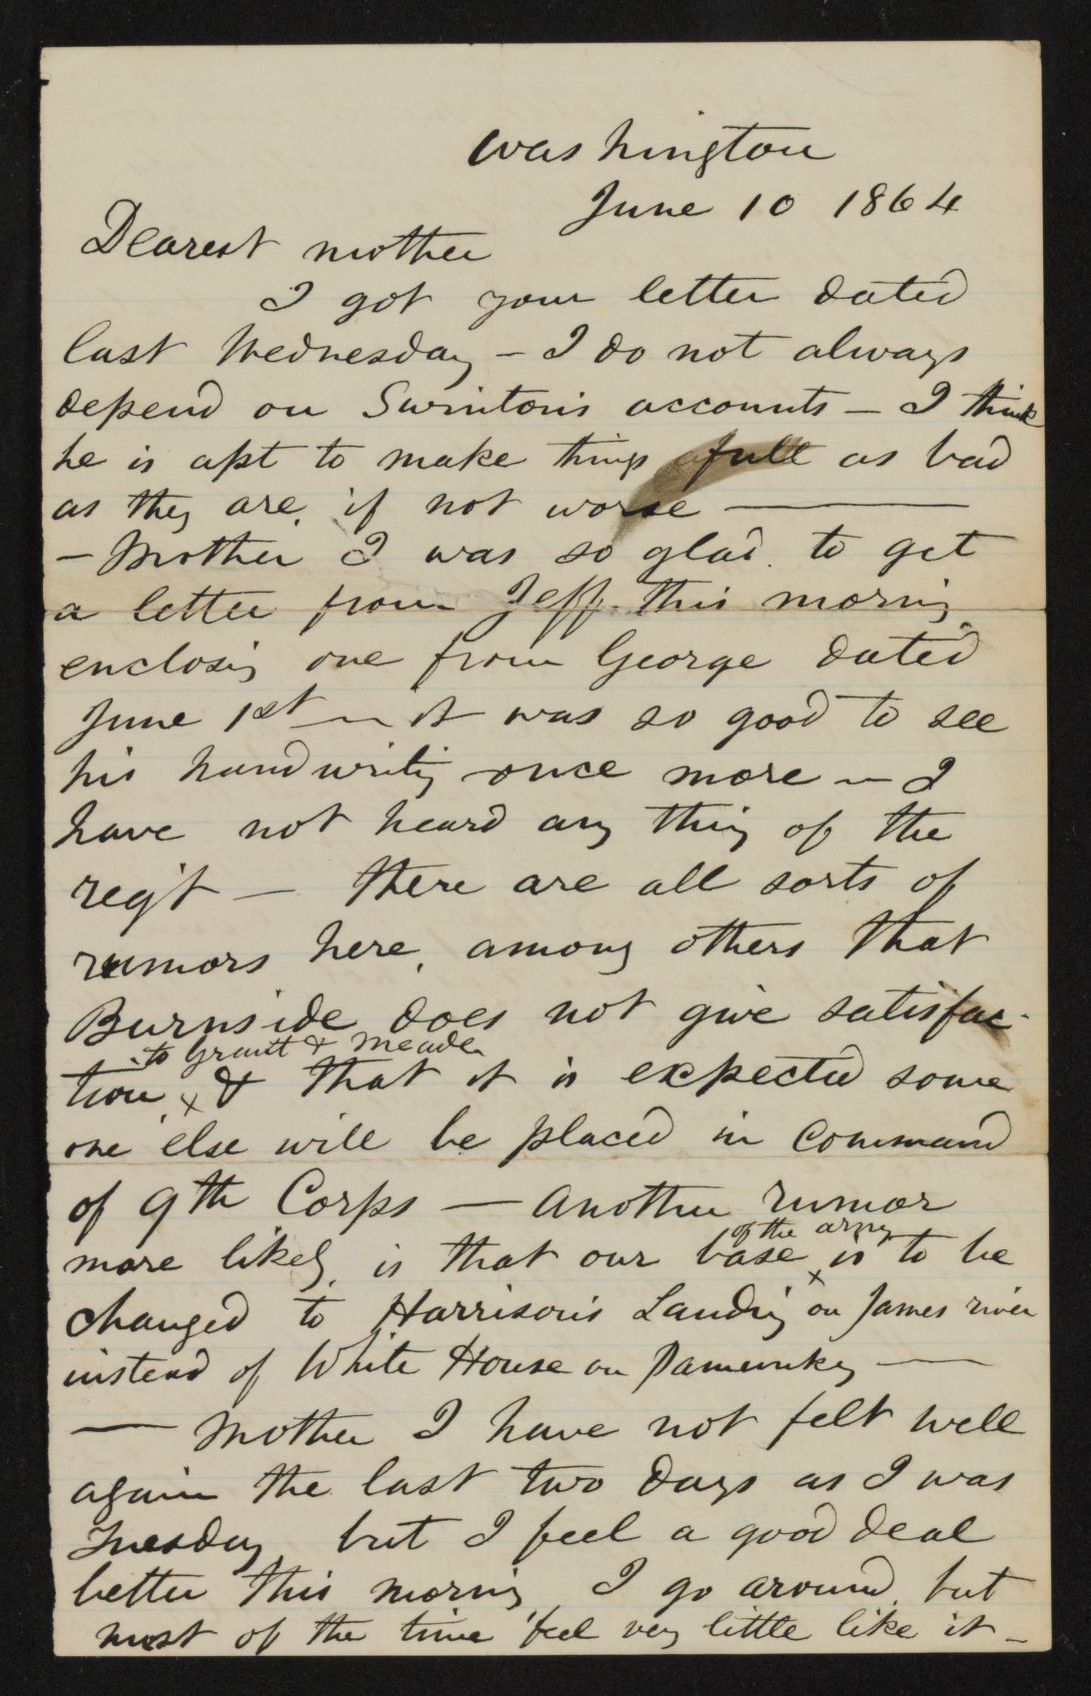 Washington
June 10 1864
Dearest mother
I got your letter dated
last Wednesday – I do not always
depend on Swinton's accounts – I think
he is apt to make things full as bad
as they are, if not worse —
– Mother I was so glad to get
a letter from Jeff this morning
enclosing one from George dated
June 1st – it was so good to see
his handwriting once more – I
have not heard any thing of the
reg't – there are all sorts of
rumors here, among others that
Burnside does not give satisfac-
to Grant & Meade
tion, & that it is expected some
one else will be placed in command
of 9th Corps – Another rumor
of the army
more likely is that our base is to be
changed to Harrison's Landing on James river
instead of White House on Pamunkey —
— Mother I have not felt well
again the last two days as I was
Tuesday, but I feel a good deal
better this morning, I go around, but
most of the time feel very little like it –